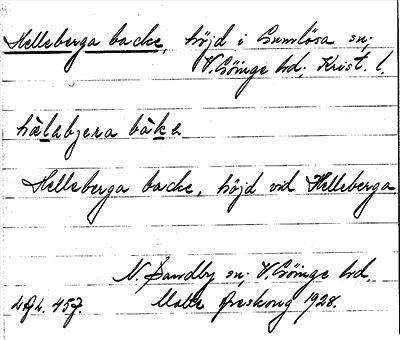 Helleberga backe, höjd i Gumlösa sn;
V. Göinge hd, Krist. l.
hälabjera bake
Helleberga backe, höjd vid Helleberga
N. Sandby sn; V. Göinge hd.
Malte Areskoug 1928.